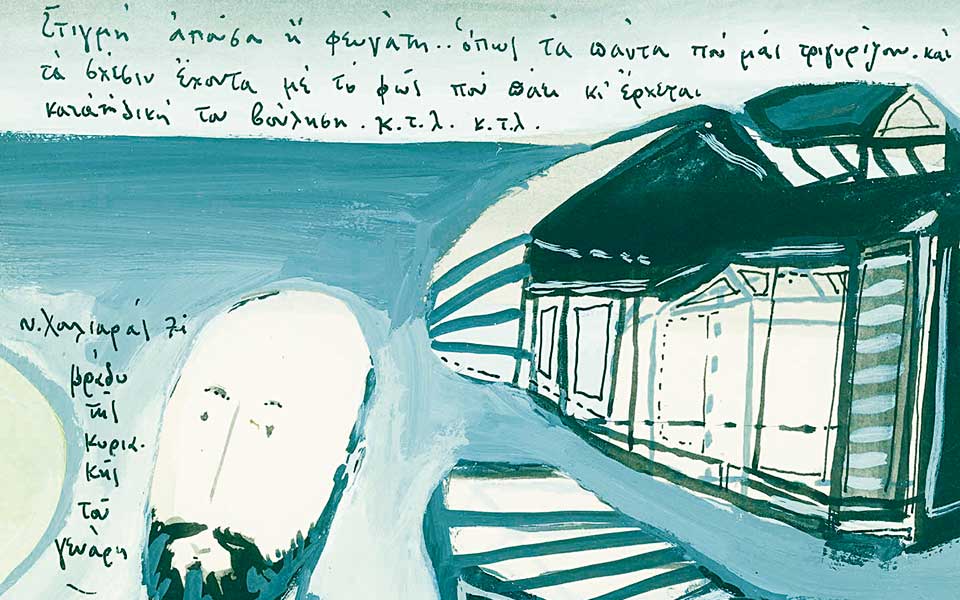 Στιγμή ἅπασα ἡ φευγάτη.. ὅπως τὰ πάντα ποὺ μᾶς τριγυρίζουν. καὶ
τὰ σχέσιν ἔχοντα μὲ τὸ φῶς ποὺ πάει κι' ἔρχεται
κατὰ τὴ δική του βούληση. κ.τ.λ. κ.τ.λ.
ν. Χαλιαρᾶς 71
βράδυ
τῆς
κυρια-
κῆς
τοῦ
γενάρη